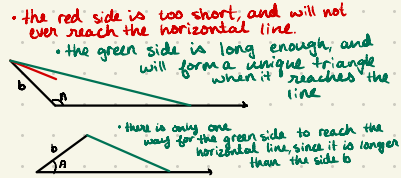 • the red side is too short, and will not
ever reach the horizontal line.
• the green side is long enough, and
will form a unique triangle
when it reaches the
line
b
A
• there is only one
way for the green side to reach the
horizontal line, since it is longer
than the side b
b
A